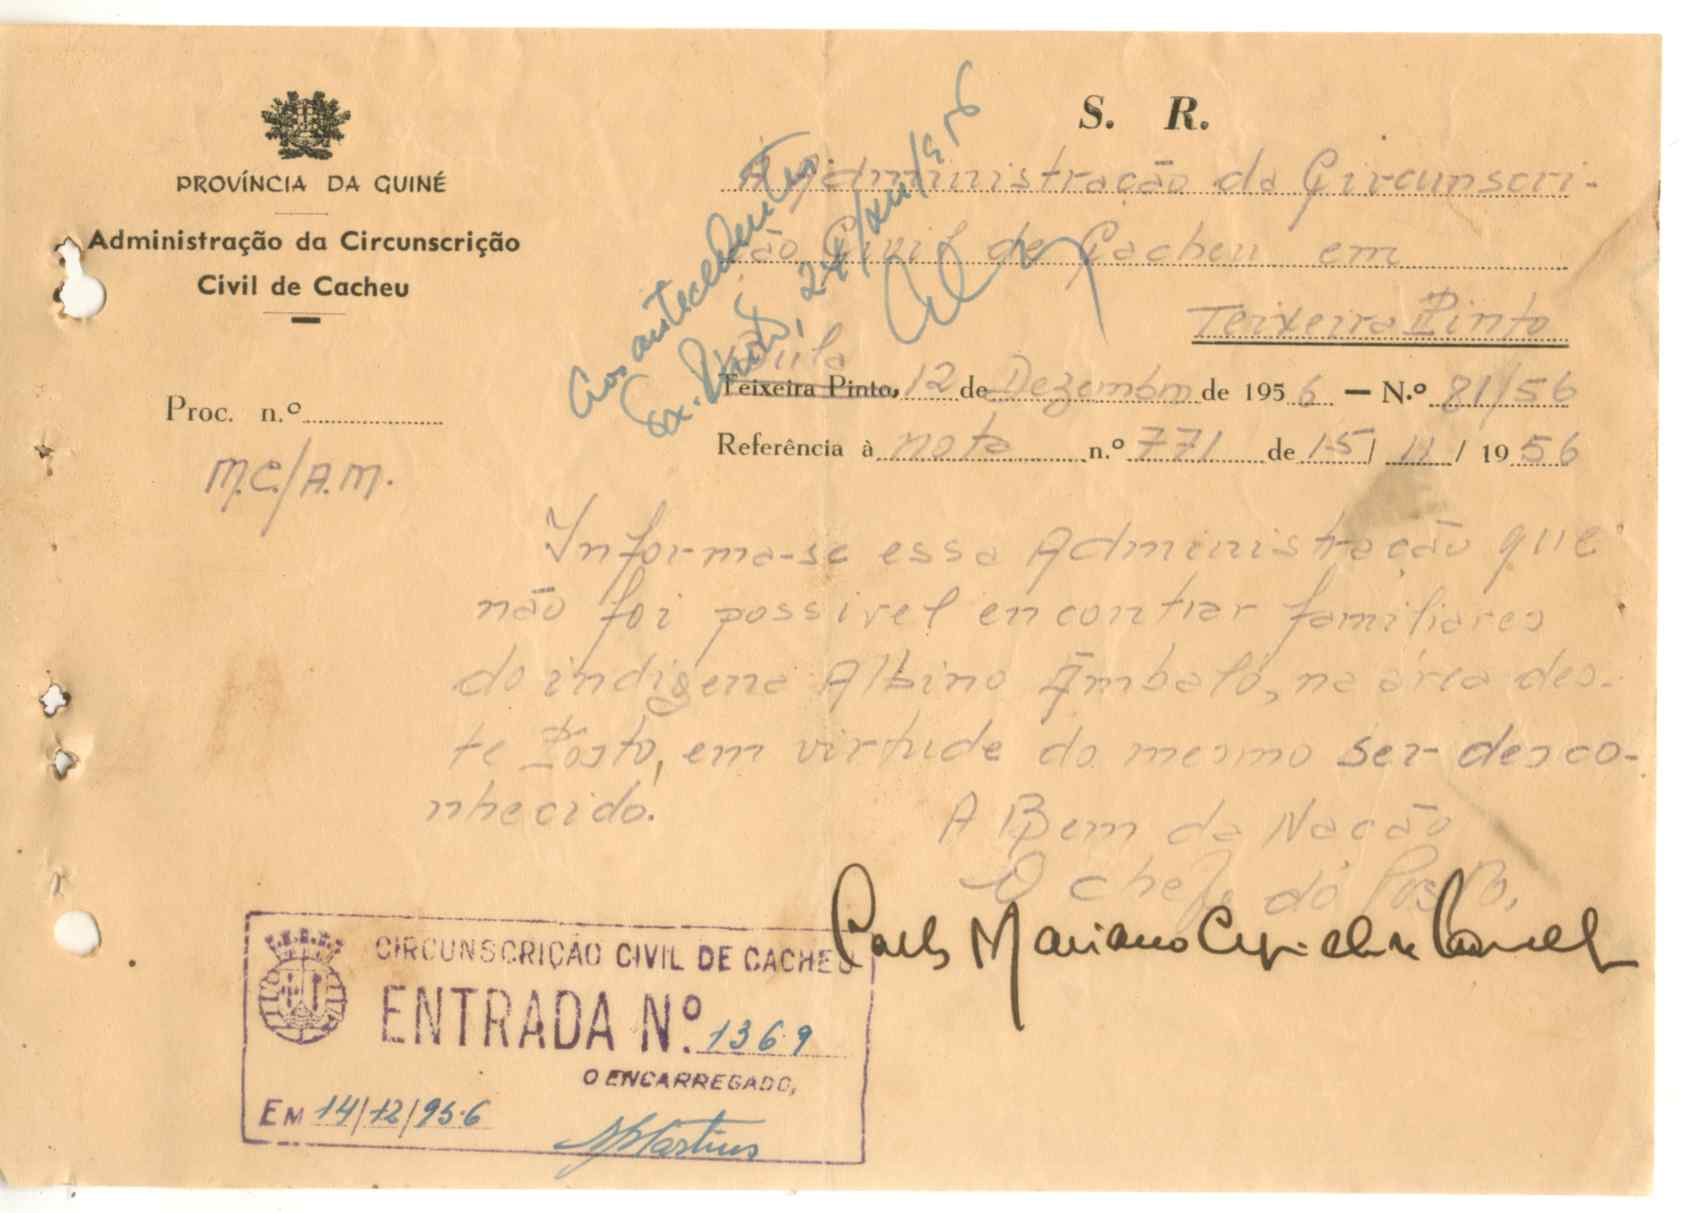 S. R.
PROVÍNCIA DA GUINÉ
Administração da Circunscrição
Civil de Cacheu
À Administração da Circunscri-
ção Civil de Cacheu em
Teixeira Pinto
Aos antecedentes
Tex. Pinto, 24/XII/956
Bula
Teixeira Pinto, 12 de Dezembro de 1956 — N.º 81/56
Proc. n.º
Referência à nota n.º 771 de 15/11/1956
M.C./A.M.
Informa-se essa Administração que
não foi possivel encontrar familiares
do indigena Albino Ambaló, na área des-
te Posto, em virtude do mesmo ser desco-
nhecido.
A Bem da Nação
O chefe do Posto,
Carlos Mariano
CIRCUNSCRIÇÃO CIVIL DE CACHEU
ENTRADA Nº. 1369
O ENCARREGADO,
EM 14/12/956
Martins